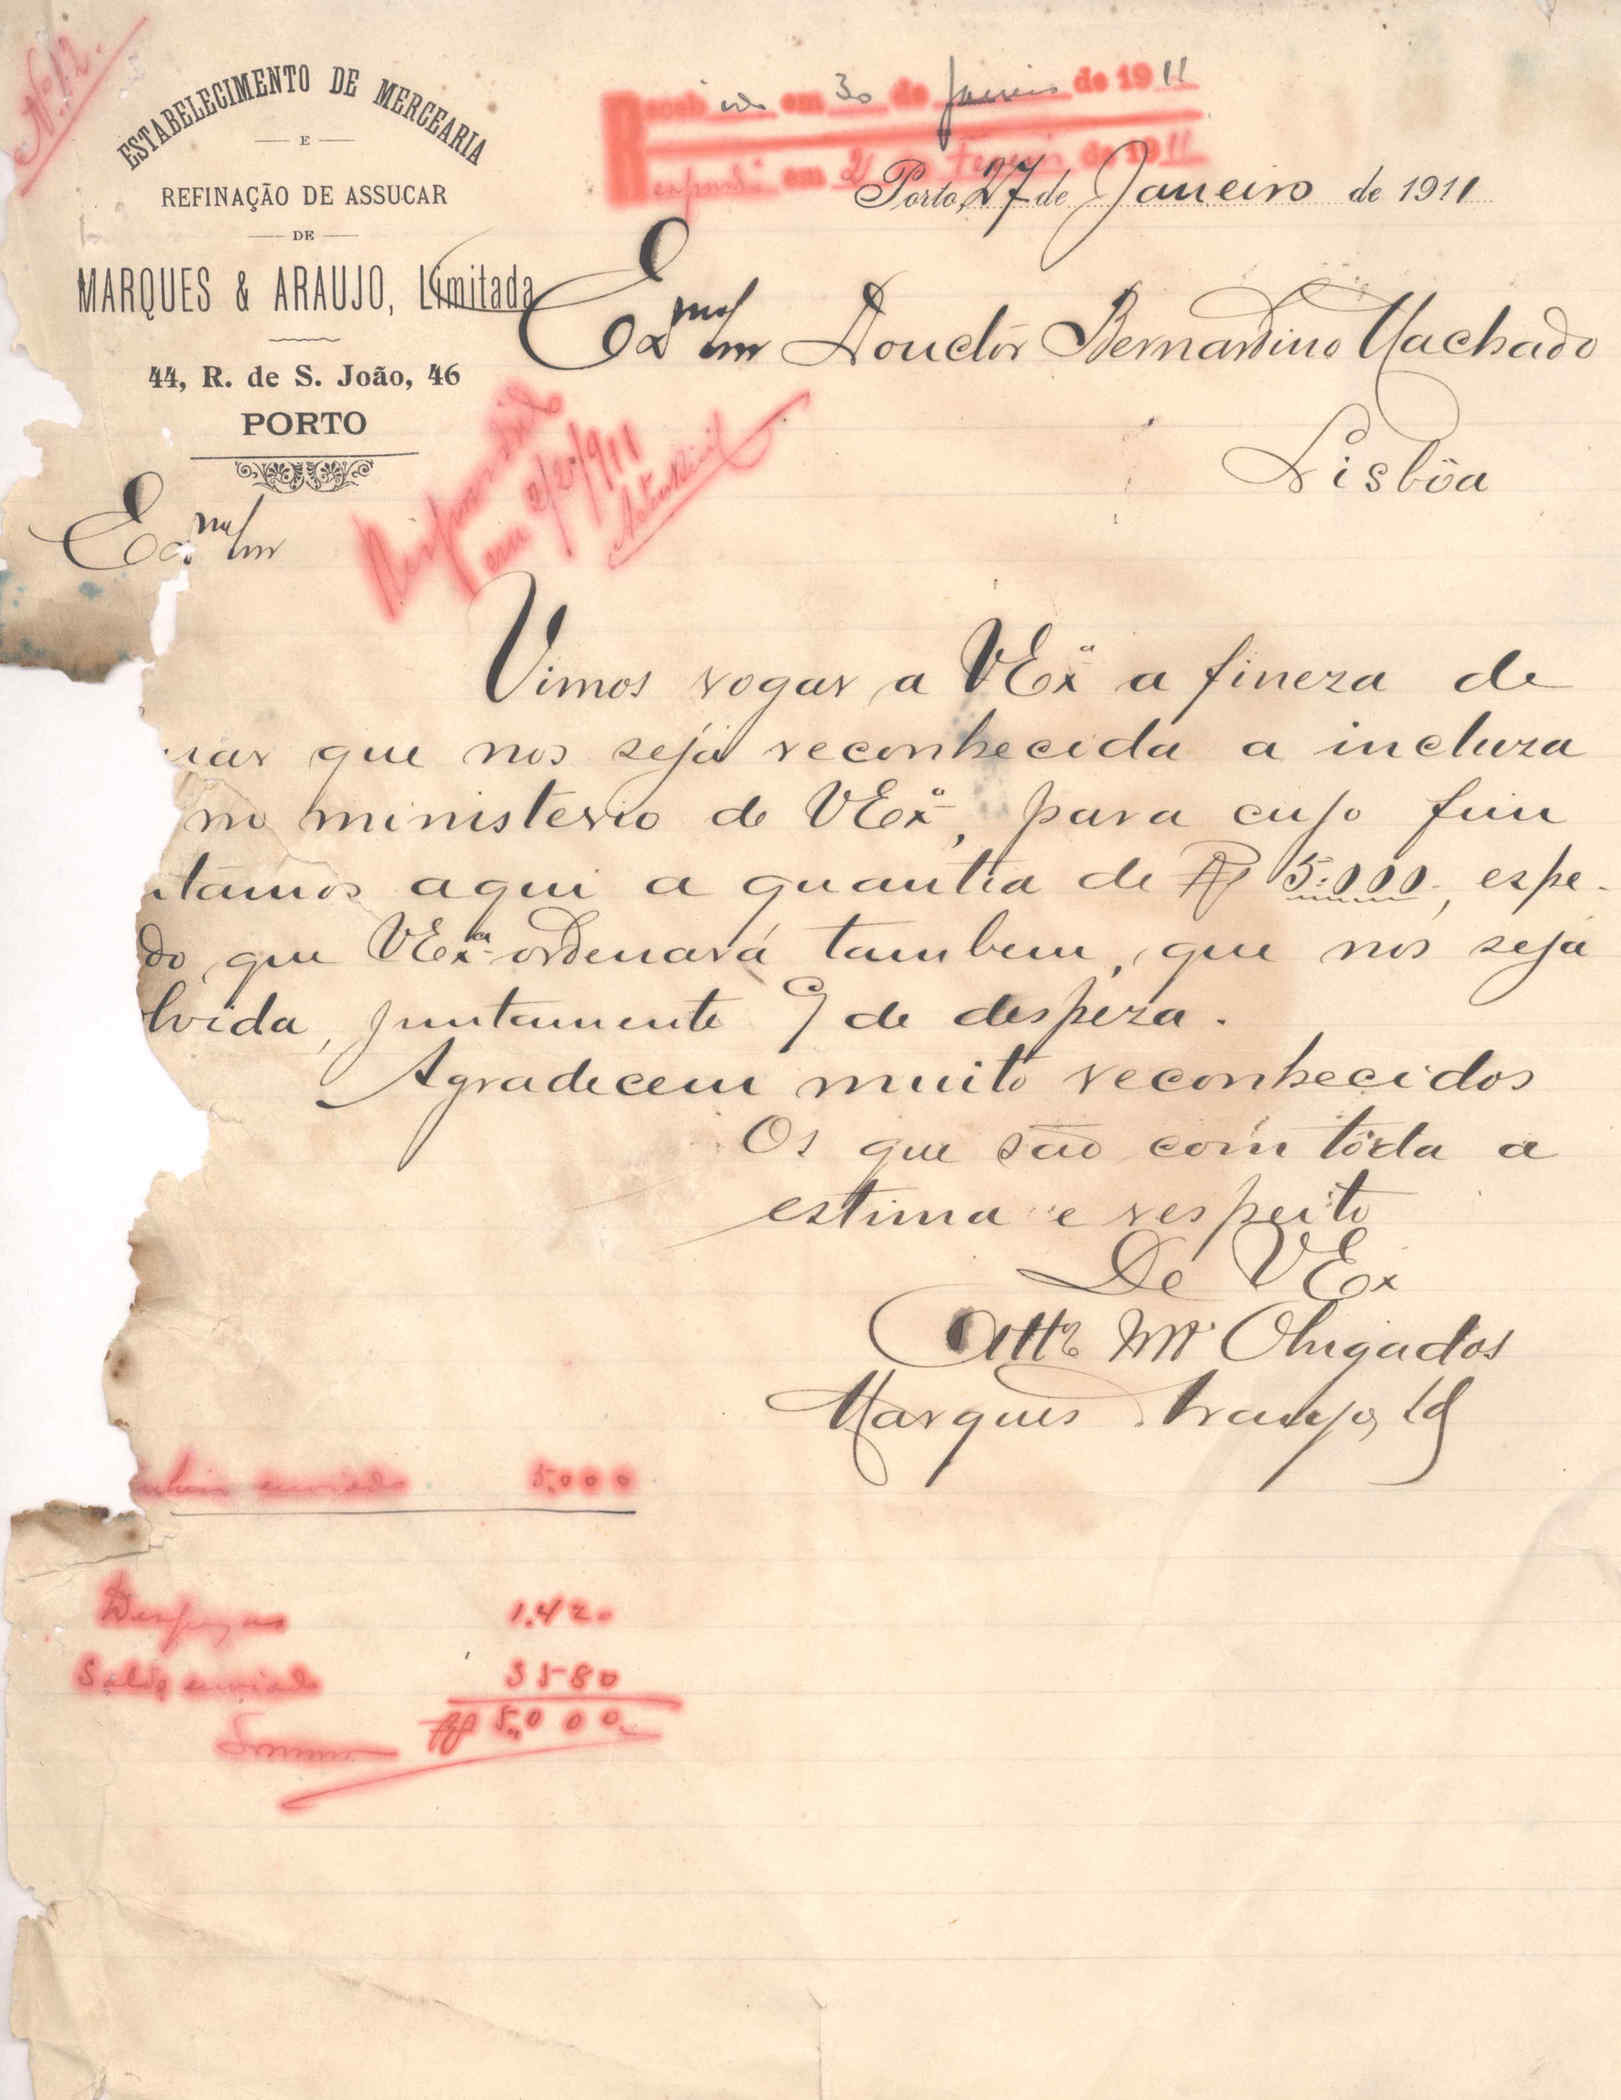 Nº 12.
ESTABELECIMENTO DE MERCEARIA
E
REFINAÇÃO DE ASSUCAR
DE
MARQUES & ARAUJO, Limitada
44, R. de S. João, 46
PORTO
Recebido em 30 de Janeiro de 1911
Respondi em 2 Fevereiro de 1911
Porto, 27 de Janeiro de 1911
Exmo Snr Douctôr Bernardino Machado
Lisbôa
Respondido
em 2/2/911
Exmo Snr
Vimos rogar a VExª a fineza de
que nos seja reconhecida a incluza
no ministerio de VExª, para cujo fim
ntamos aqui a quantia de Rs 5:000, espe-
do que VExª ordenará tambem, que nos seja
lvida, juntamente de despeza.
Agradecem muito reconhecidos
Os que são com tôda a
estima e respeito
De VEx
Attos Obrigados
Marques Araujo, Ld
nheiro enviado 5.000
Despezas 1.420
Saldo enviado 3580
Somma Rs 5.000